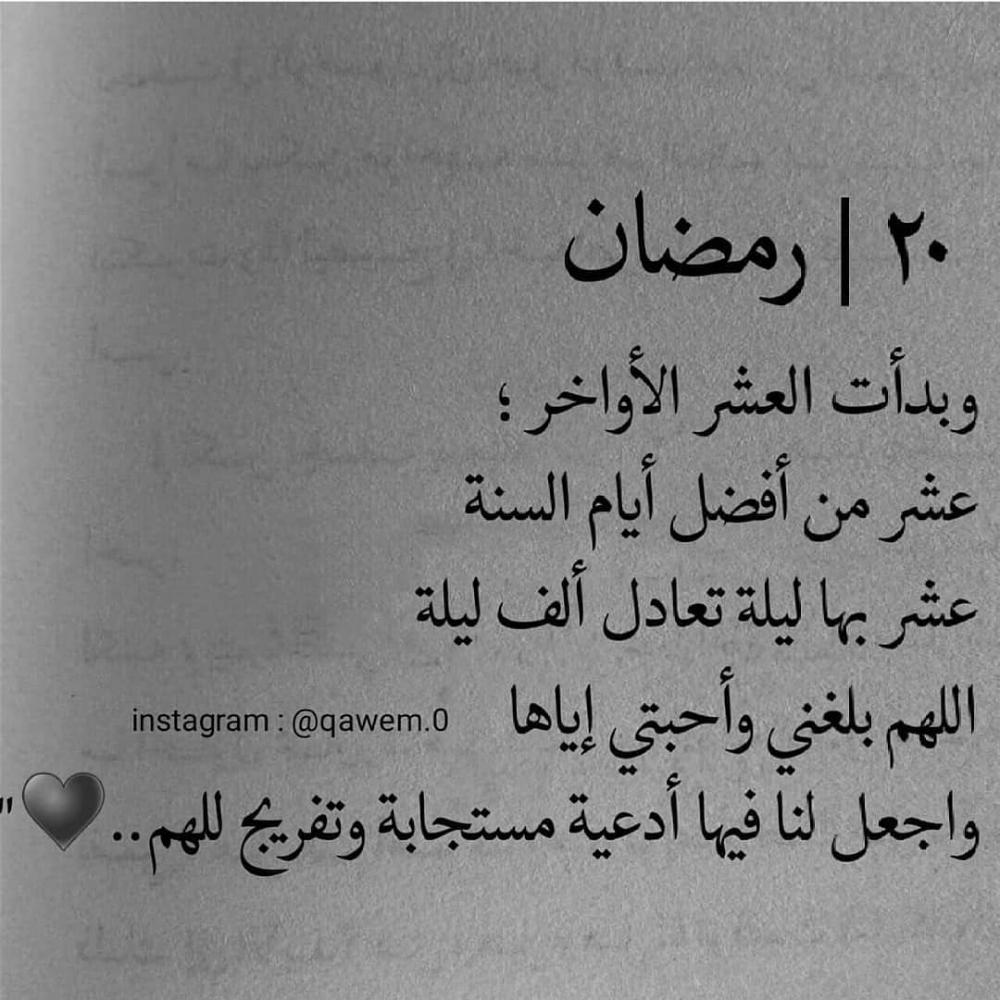 ٢٠ | رمضان
وبدأت العشر الأواخر ؛
عشر من أفضل أيام السنة
عشر بها ليلة تعادل ألف ليلة
اللهم بلغني وأحبتي إياها
instagram : @qawem.0
واجعل لنا فيها أدعية مستجابة وتفريج للهم..🖤"